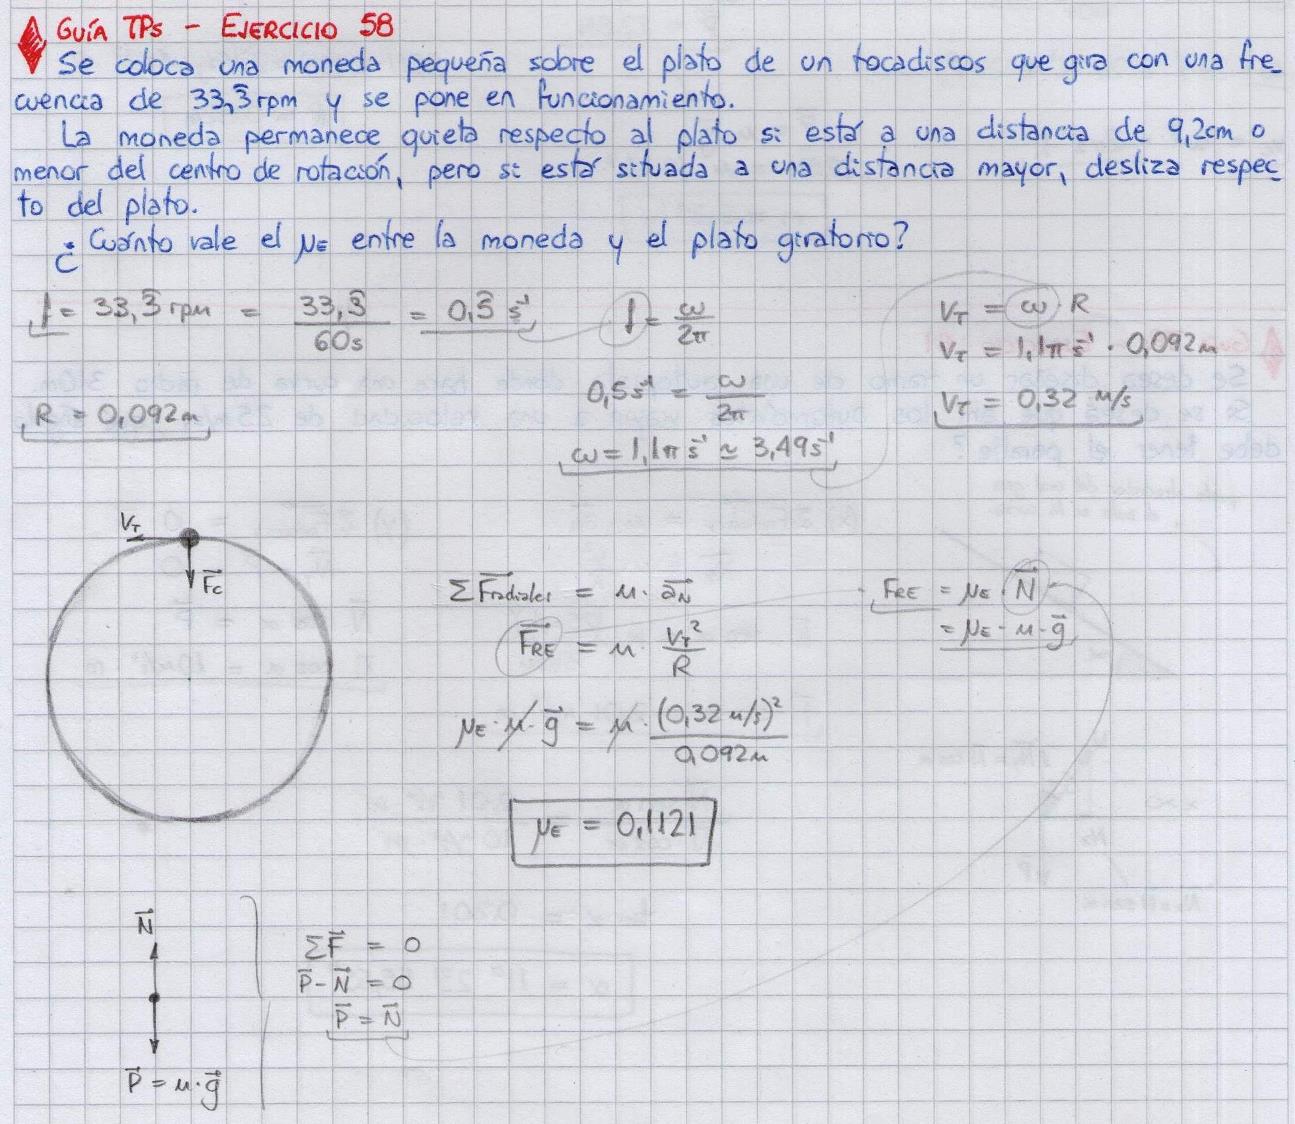 GUÍA TPs - EJERCICIO 58
Se coloca una moneda pequeña sobre el plato de un tocadiscos que gira con una fre_
cuencia de 33,3̄ rpm y se pone en funcionamiento.
La moneda permanece quieta respecto al plato si está a una distancia de 9,2cm o
menor del centro de rotación, pero si está situada a una distancia mayor, desliza respec_
to del plato.
¿Cuánto vale el μE entre la moneda y el plato giratorio?
f = 33,3̄ rpm = 33,3̄ / 60s = 0,5̄ s⁻¹
f = ω / 2π
0,5 s⁻¹ = ω / 2π
ω = 1,1π s⁻¹ ≃ 3,49 s⁻¹
VT = ω · R
VT = 1,1π s⁻¹ · 0,092m
VT = 0,32 m/s
R = 0,092m
VT
F⃗c
ΣF⃗radiales = m · a⃗N
F⃗RE = m · VT² / R
μE · m · g⃗ = m · (0,32 m/s)² / 0,092m
μE = 0,1121
FRE = μE · N⃗
= μE · m · g⃗
N⃗
P⃗ = m · g⃗
ΣF⃗ = 0
P⃗ - N⃗ = 0
P⃗ = N⃗